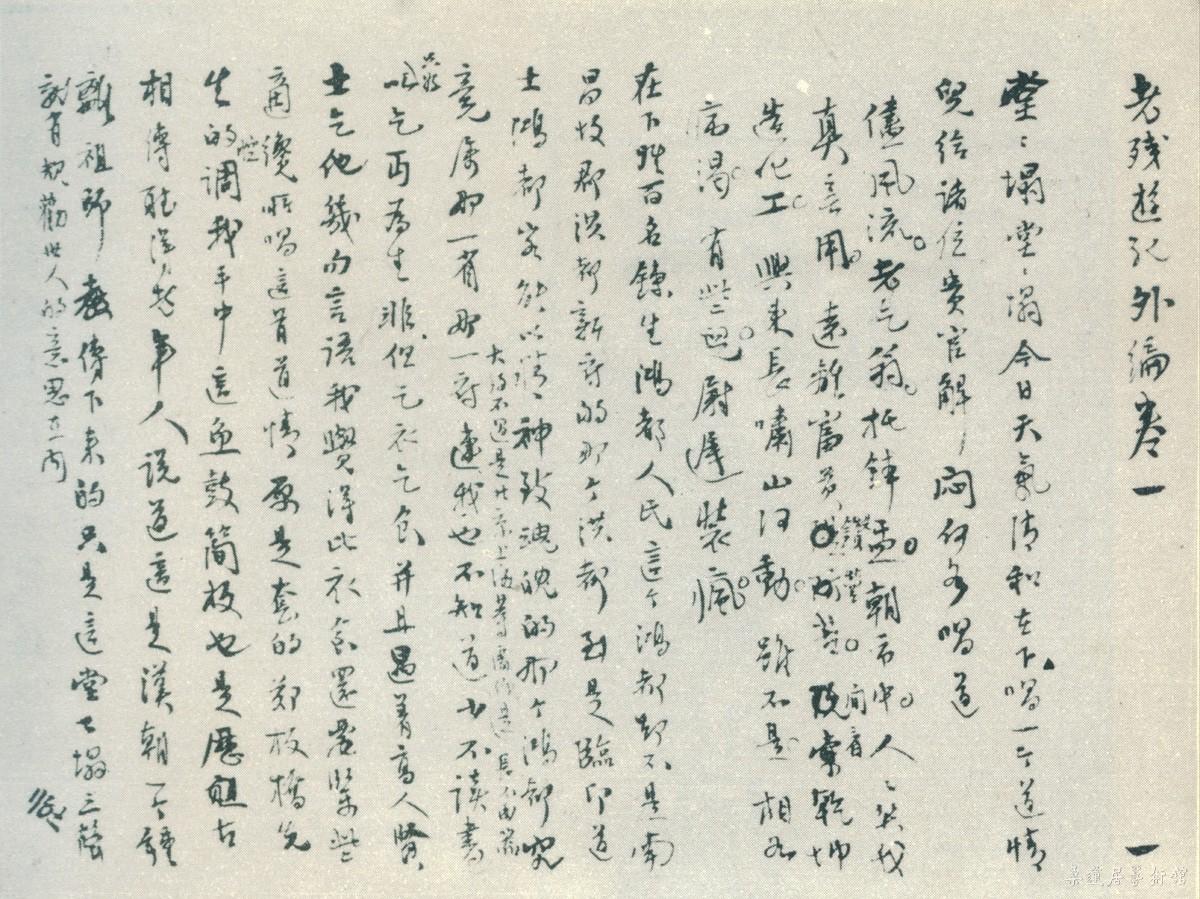 老残遊記外編卷一
一
堂〻塌堂〻塌今日天氣清和在下唱一个道情
兒給諸位貴官解解悶何如唱道
儘風流。老乞翁。托鉢盂。朝市中。人人笑我
真無用。遠離富貴鑽營苦。閒看乾坤
造化工。興來長嘯山河動。雖不是相如
病渴。有些兒尉遲裝瘋。
在下姓百名鍊生鴻都人氏這个鴻都却不是南
昌故郡洪都新府的那个洪都到是臨邛道
士鴻都客能以精神致魂魄的那个鴻都究
竟屬那一省那一府連我也不知道大約不過是北京上海等處便是 少不讀書長不成器
只好以乞丐為生非但乞衣乞食并且遇着高人賢
士乞他幾句言語我覺得比衣食還要緊些
適纔所唱這首道情原是套的鄭板橋先
生的腔調我手中這魚鼓簡板也是歷祖古
相傳聽得老年人說道這是漢朝一个鍾
離祖師傳下來的只是這堂堂塌三聲
就有規勸世人的意思在內